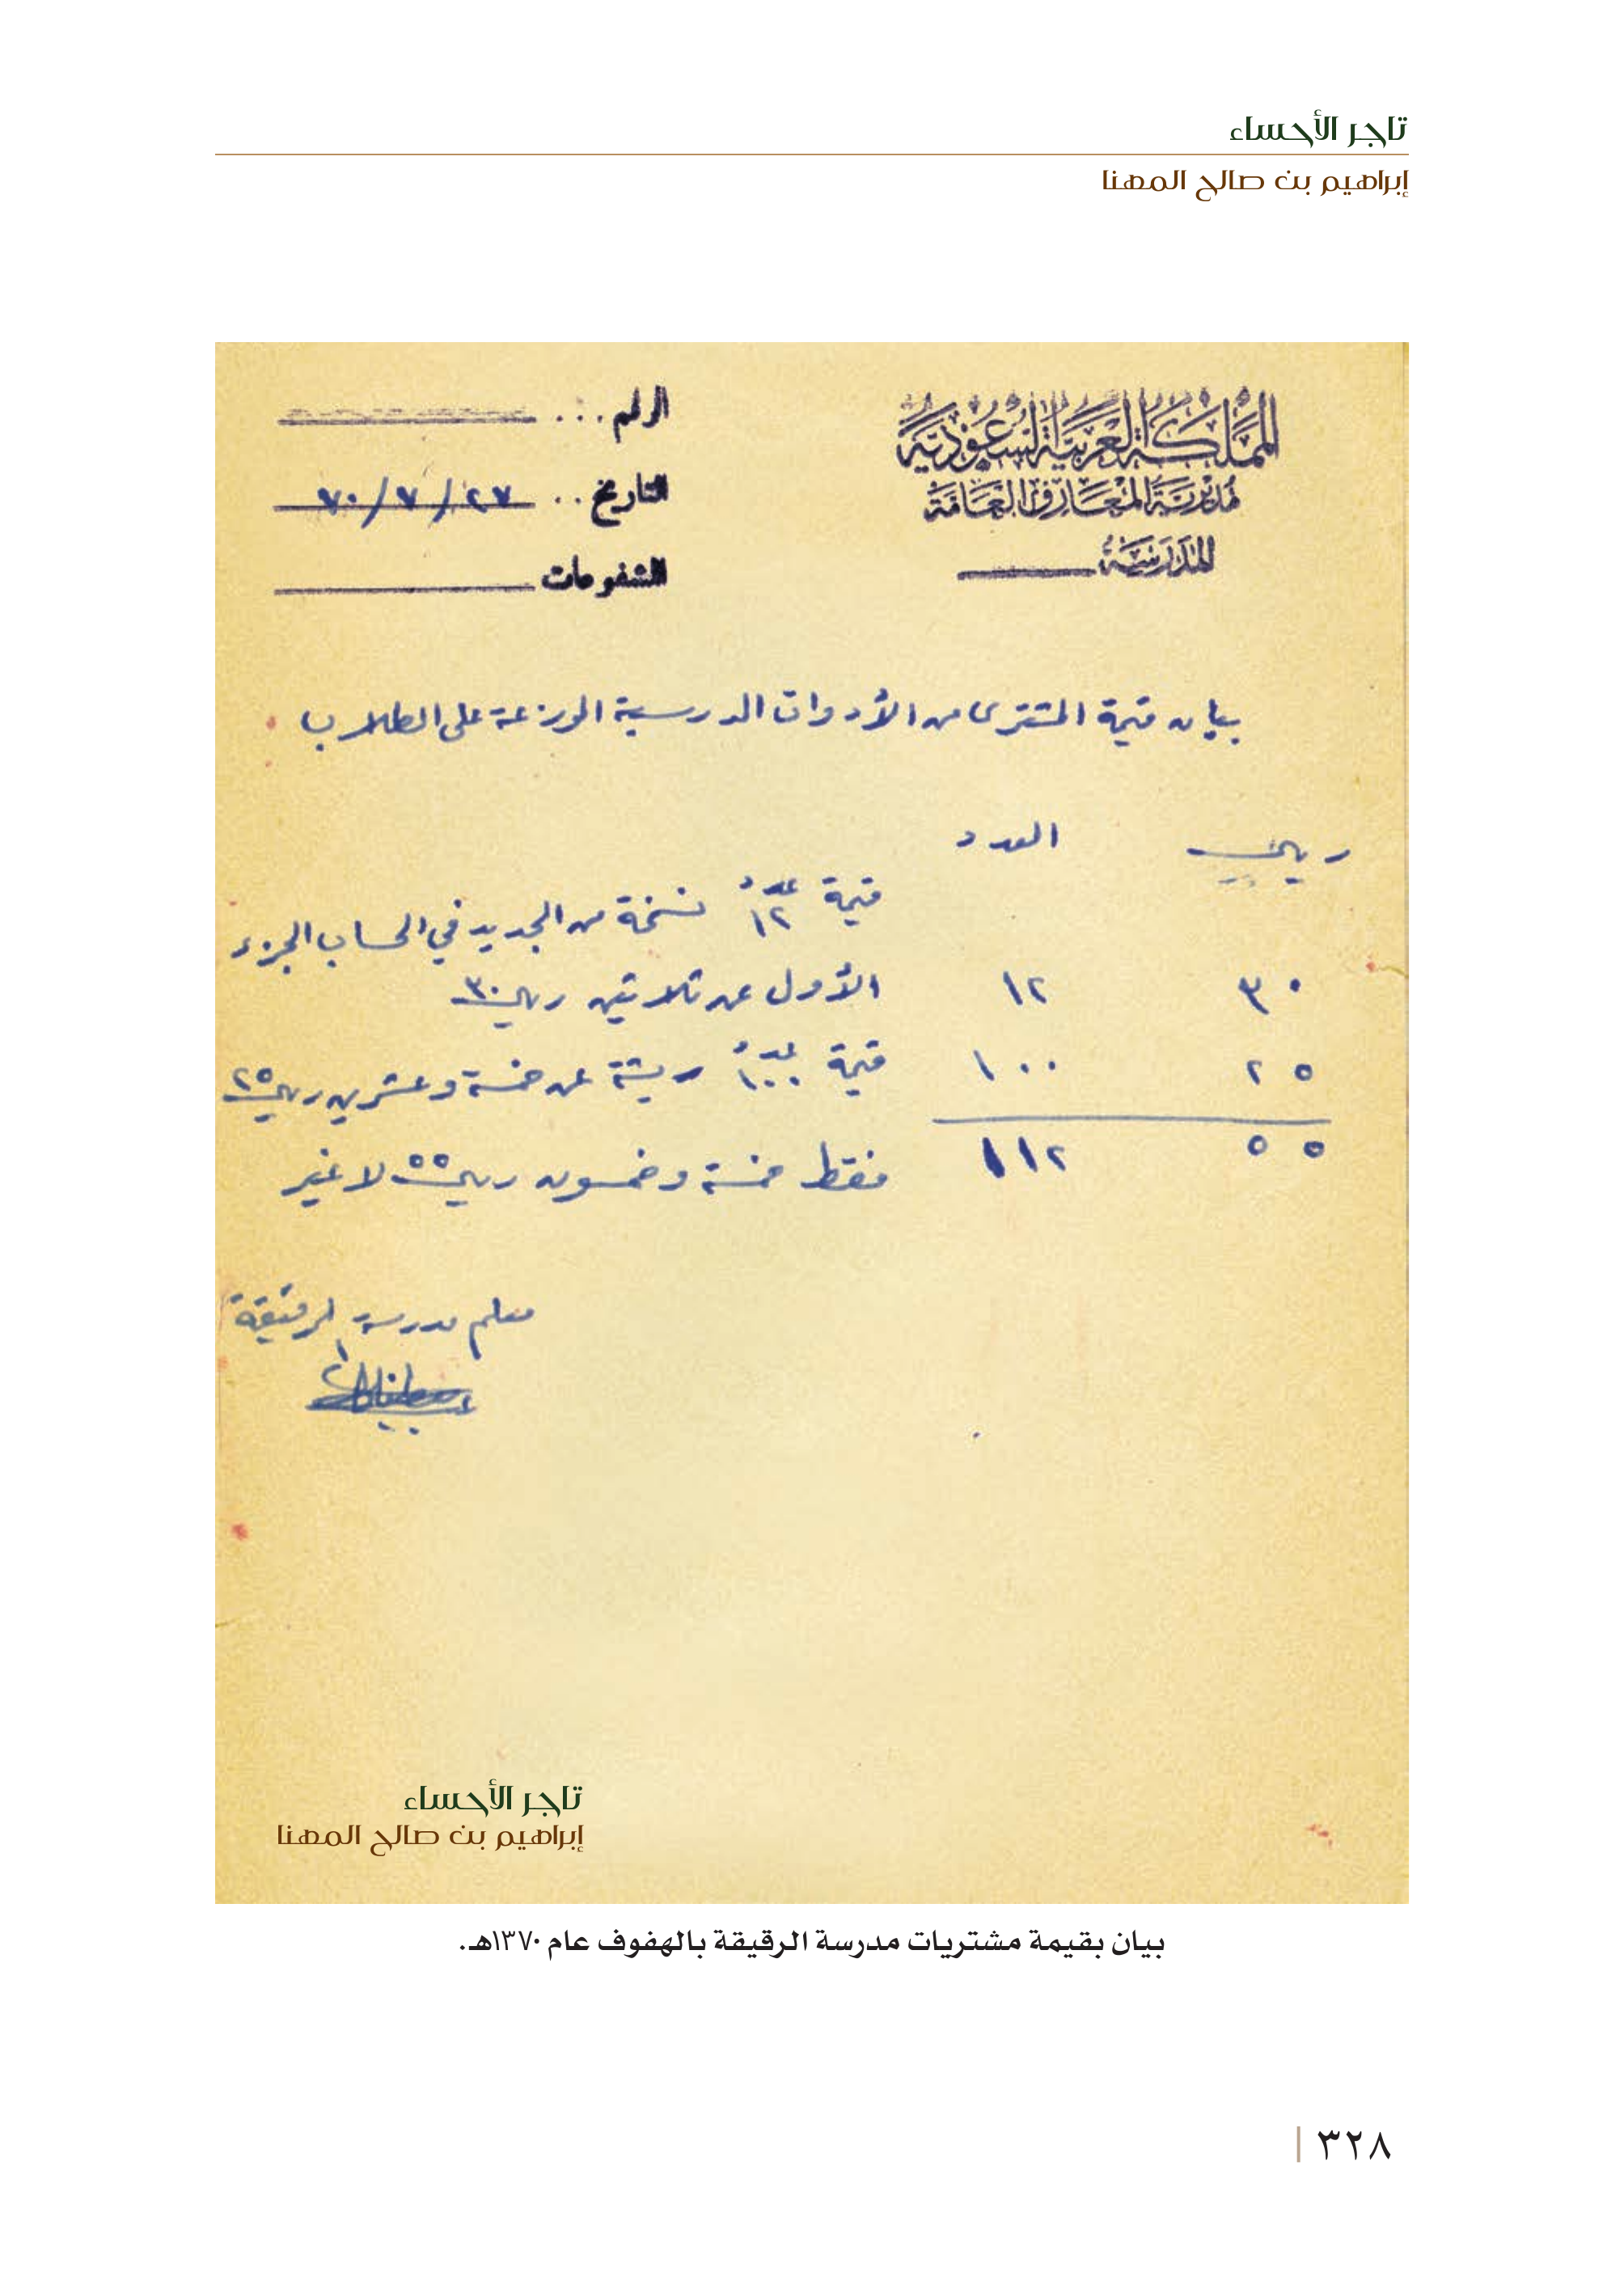 تاجر الأحساء
إبراهيم بن صالح المهنا
المملكة العربية السعودية
مديرية المعارف العامة
المدرسة
الرقم . . .
التاريخ . . ٢٧ / ٧ / ٧٠
المشفوعات
بيان قيمة المشترى من الأدوات المدرسية الموزعة على الطلاب
ريال العدد
قيمة عدد ١٢ نسخة من الجديد في الحساب الجزء
٣٠ ١٢ الأول عن ثلاثين ريال ٣٠
٢٥ ١٠٠ قيمة عدد ١٠٠ ريشة عن خمسة وعشرين ريال ٢٥
٥٥ ١١٢ فقط خمسة وخمسون ريال ٥٥ لا غير
معلم مدرسة الرقيقة
تاجر الأحساء
إبراهيم بن صالح المهنا
بيان بقيمة مشتريات مدرسة الرقيقة بالهفوف عام ١٣٧٠هـ.
٣٢٨